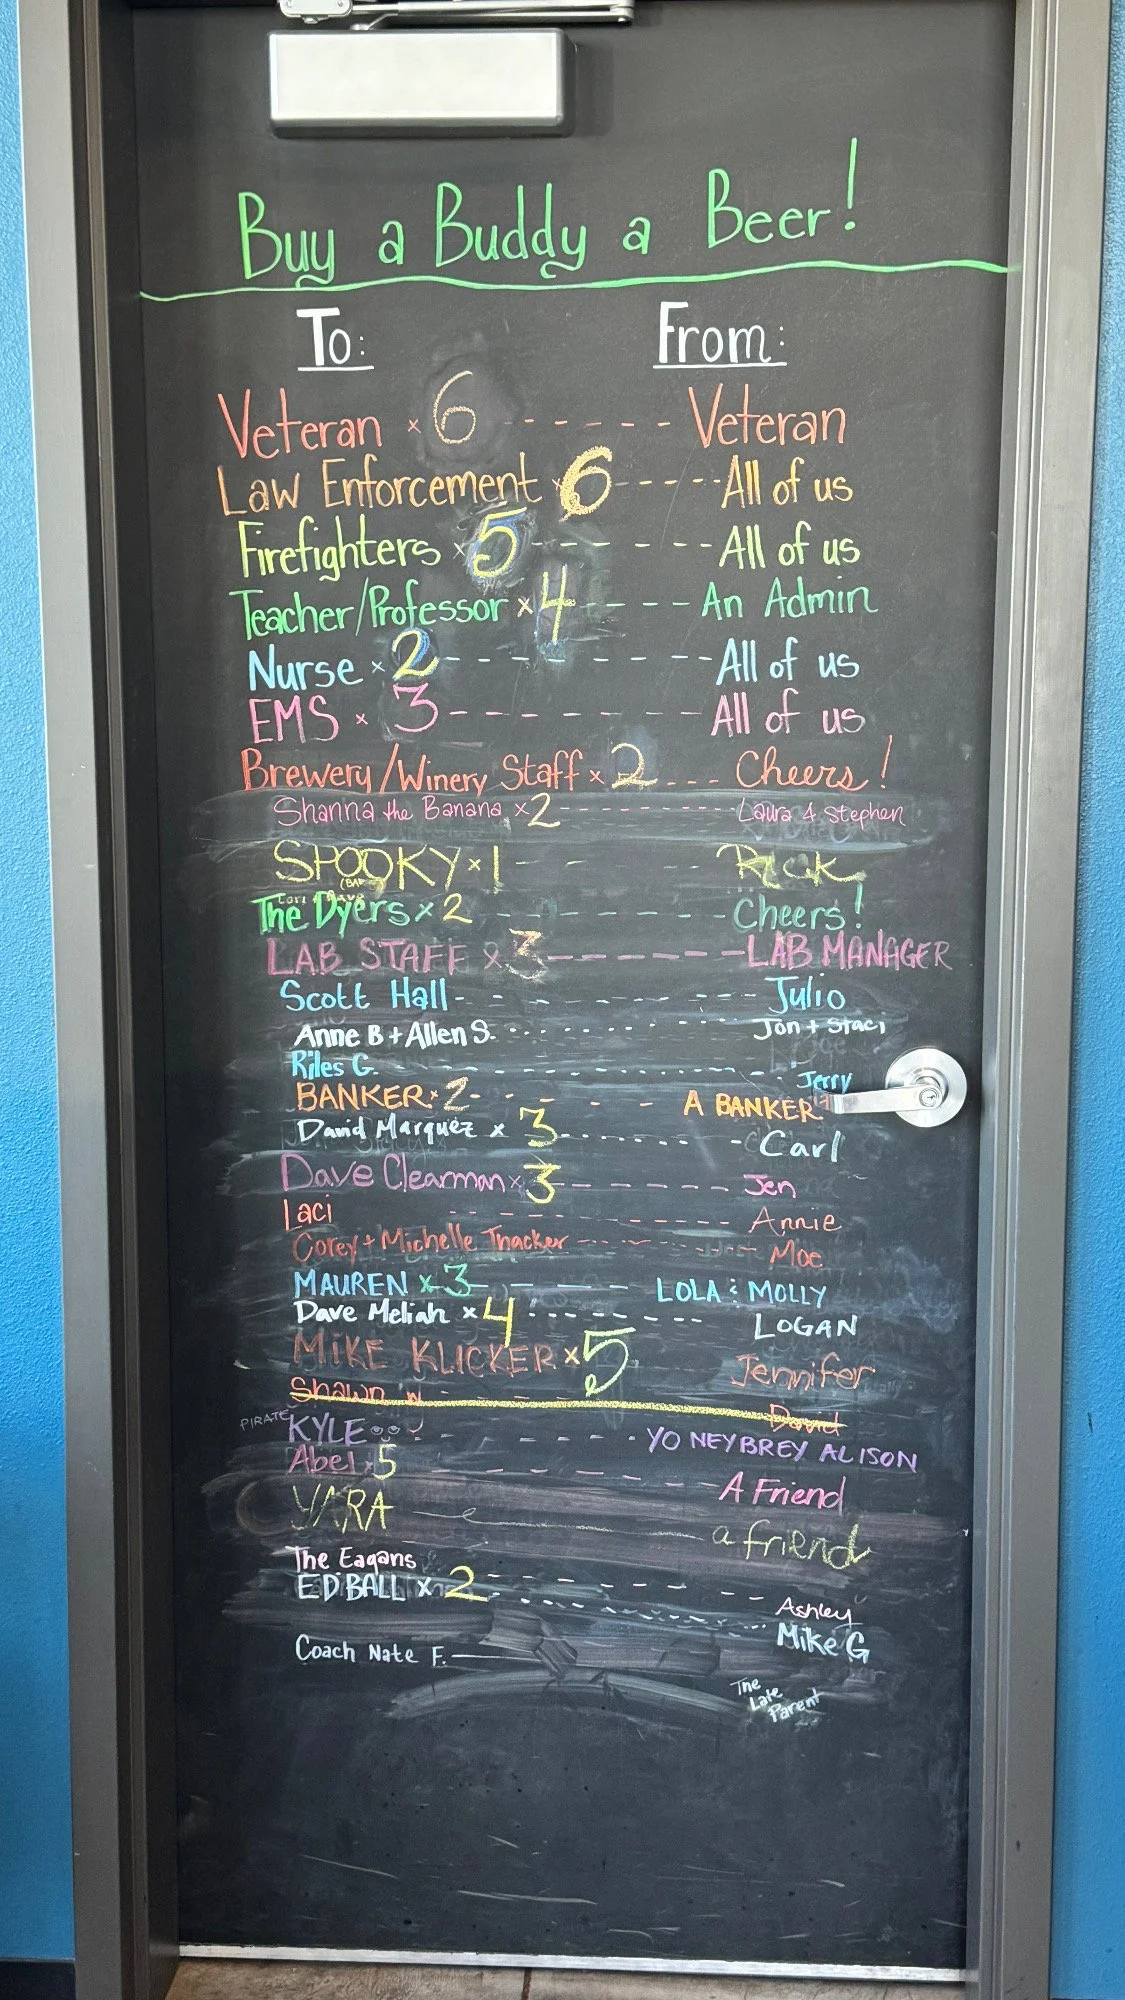 Buy a Buddy a Beer!
To: From:
Veteran x 6 - - - - - Veteran
Law Enforcement x 6 - - - - - All of us
Firefighters x 5 - - - - - - All of us
Teacher/Professor x 4 - - - - An Admin
Nurse x 2 - - - - - - - - All of us
EMS x 3 - - - - - - - All of us
Brewery/Winery Staff x 2 - - - Cheers!
Shanna the Banana x 2 - - - - - - - - Laura & Stephen
SPOOKY x 1 - - - Rick
The Dyers x 2 - - - - - - - Cheers!
LAB STAFF x 3 - - - - - - - LAB MANAGER
Scott Hall - - - - - - - - - Julio
Anne B + Allen S. - - - - - - - - Jon + Staci
Riles G. - - - - - - - - - Jerry
BANKER x 2 - - - - - - A BANKER
David Marquez x 3 - - - - - - - Carl
Dave Clearman x 3 - - - - - - Jen
Laci - - - - - - - - - Annie
Corey + Michelle Thacker - - - - - - - - Moe
MAUREN x 3 - - - - LOLA & MOLLY
Dave Meliah x 4 - - - - - - - LOGAN
MIKE KLICKER x 5 Jennifer
Shawn W - - - - - David
PIRATE KYLE - - - - - - YO NEYBREY ALISON
Abel x 5 - - - - - - A Friend
YARA - - a friend
The Eagans - - - - - - Ashley
ED BALL x 2 - - - - - - - - Mike G
Coach Nate F. —
The
Late
Parent